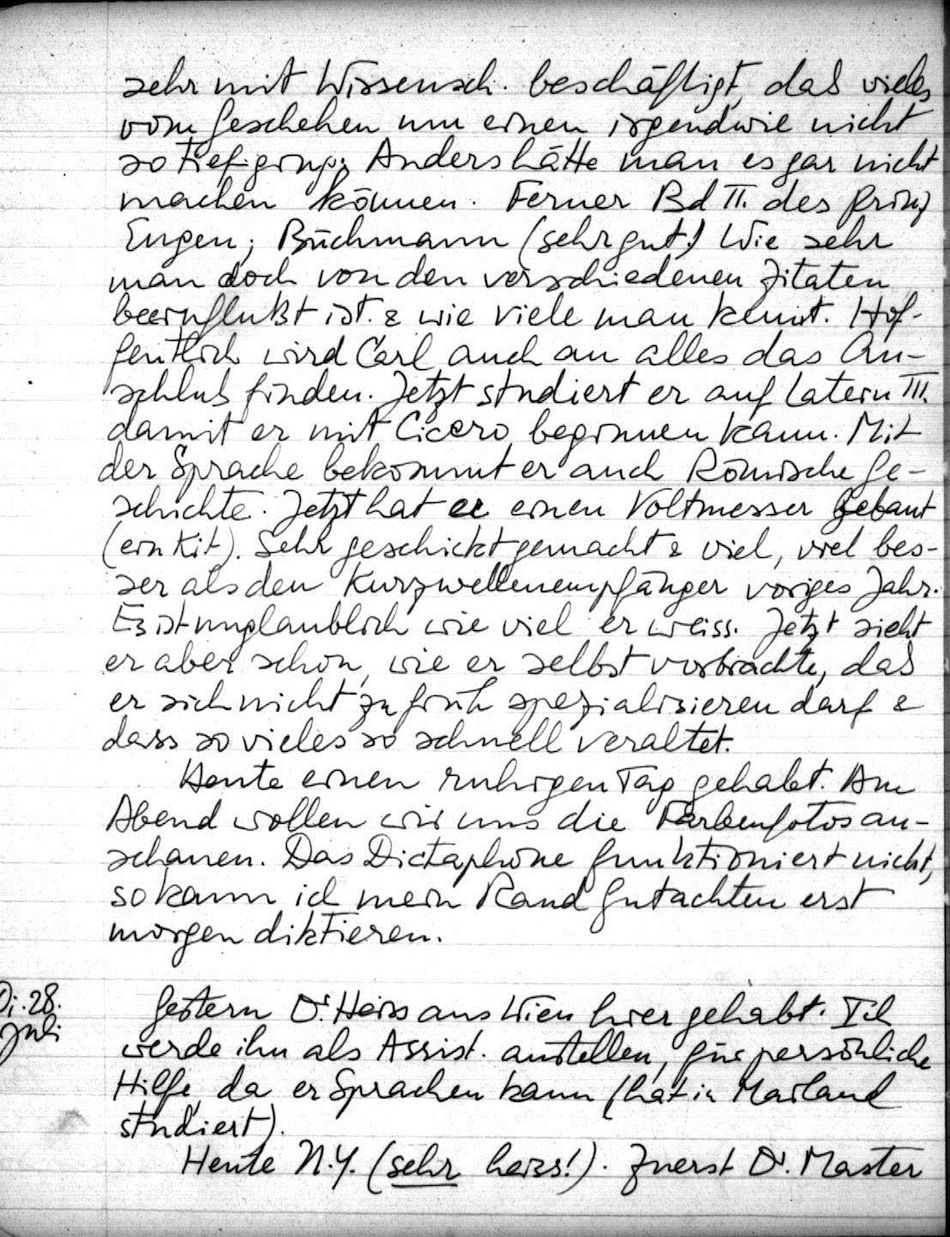 sehr mit Wissensch. beschäftigt, daß vieles
vom Geschehen um einen irgendwie nicht
so tief ging. Anders hätte man es gar nicht
machen können. Ferner Bd II. des Prinz
Eugen; Büchmann (sehr gut!) Wie sehr
man doch von den verschiedenen Zitaten
beeinflußt ist. & wie viele man kennt. Hof-
fentlich wird Carl auch an alles das An-
schluß finden. Jetzt studiert er auf Latein III.
damit er mit Cicero beginnen kann. Mit
der Sprache bekommt er auch Römische Ge-
schichte. Jetzt hat er einen Voltmesser gebaut
(ein Kit). Sehr geschickt gemacht & viel, viel bes-
ser als den Kurzwellenempfänger voriges Jahr.
Es ist unglaublich wie viel er weiss. Jetzt sieht
er aber schon, wie er selbst vorbrachte, daß
er sich nicht zu früh spezialisieren darf &
dass so vieles so schnell veraltet.
Heute einen ruhigen Tag gehabt. Am
Abend wollen wir uns die Farbenfotos an-
schauen. Das Dictaphone funktioniert nicht,
so kann ich mein Rand Gutachten erst
morgen diktieren.
Di. 28.
Juli
Gestern Dr. Heiss aus Wien hier gehabt. Ich
werde ihn als Assist. anstellen, für persönliche
Hilfe, da er Sprachen kann (hat in Mailand
studiert).
Heute N.Y. (sehr heiss!). Zuerst Dr. Master